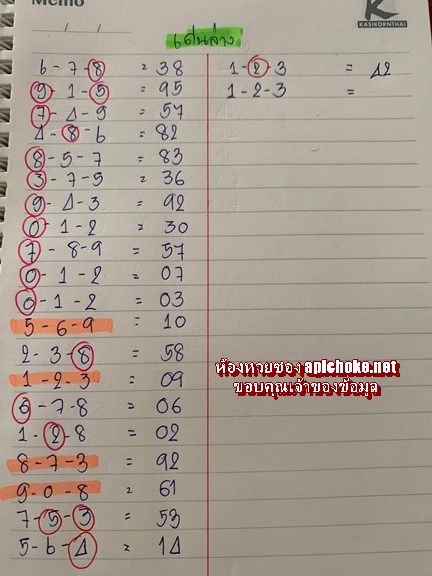 Memo
KASIKORNTHAI
/ /
เด่นล่าง
6-7-8 = 38
9-1-5 = 95
7-4-9 = 57
4-8-6 = 82
8-5-7 = 83
3-7-5 = 36
9-4-3 = 92
0-1-2 = 30
7-8-9 = 57
0-1-2 = 07
0-1-2 = 03
5-6-9 = 10
2-3-8 = 58
1-2-3 = 09
6-7-8 = 06
1-2-8 = 02
8-7-3 = 92
9-0-8 = 61
7-5-3 = 53
5-6-4 = 14
1-2-3 = 42
1-2-3 =
ห้องหวยซอง apichoke.net
ขอบคุณเจ้าของข้อมูล